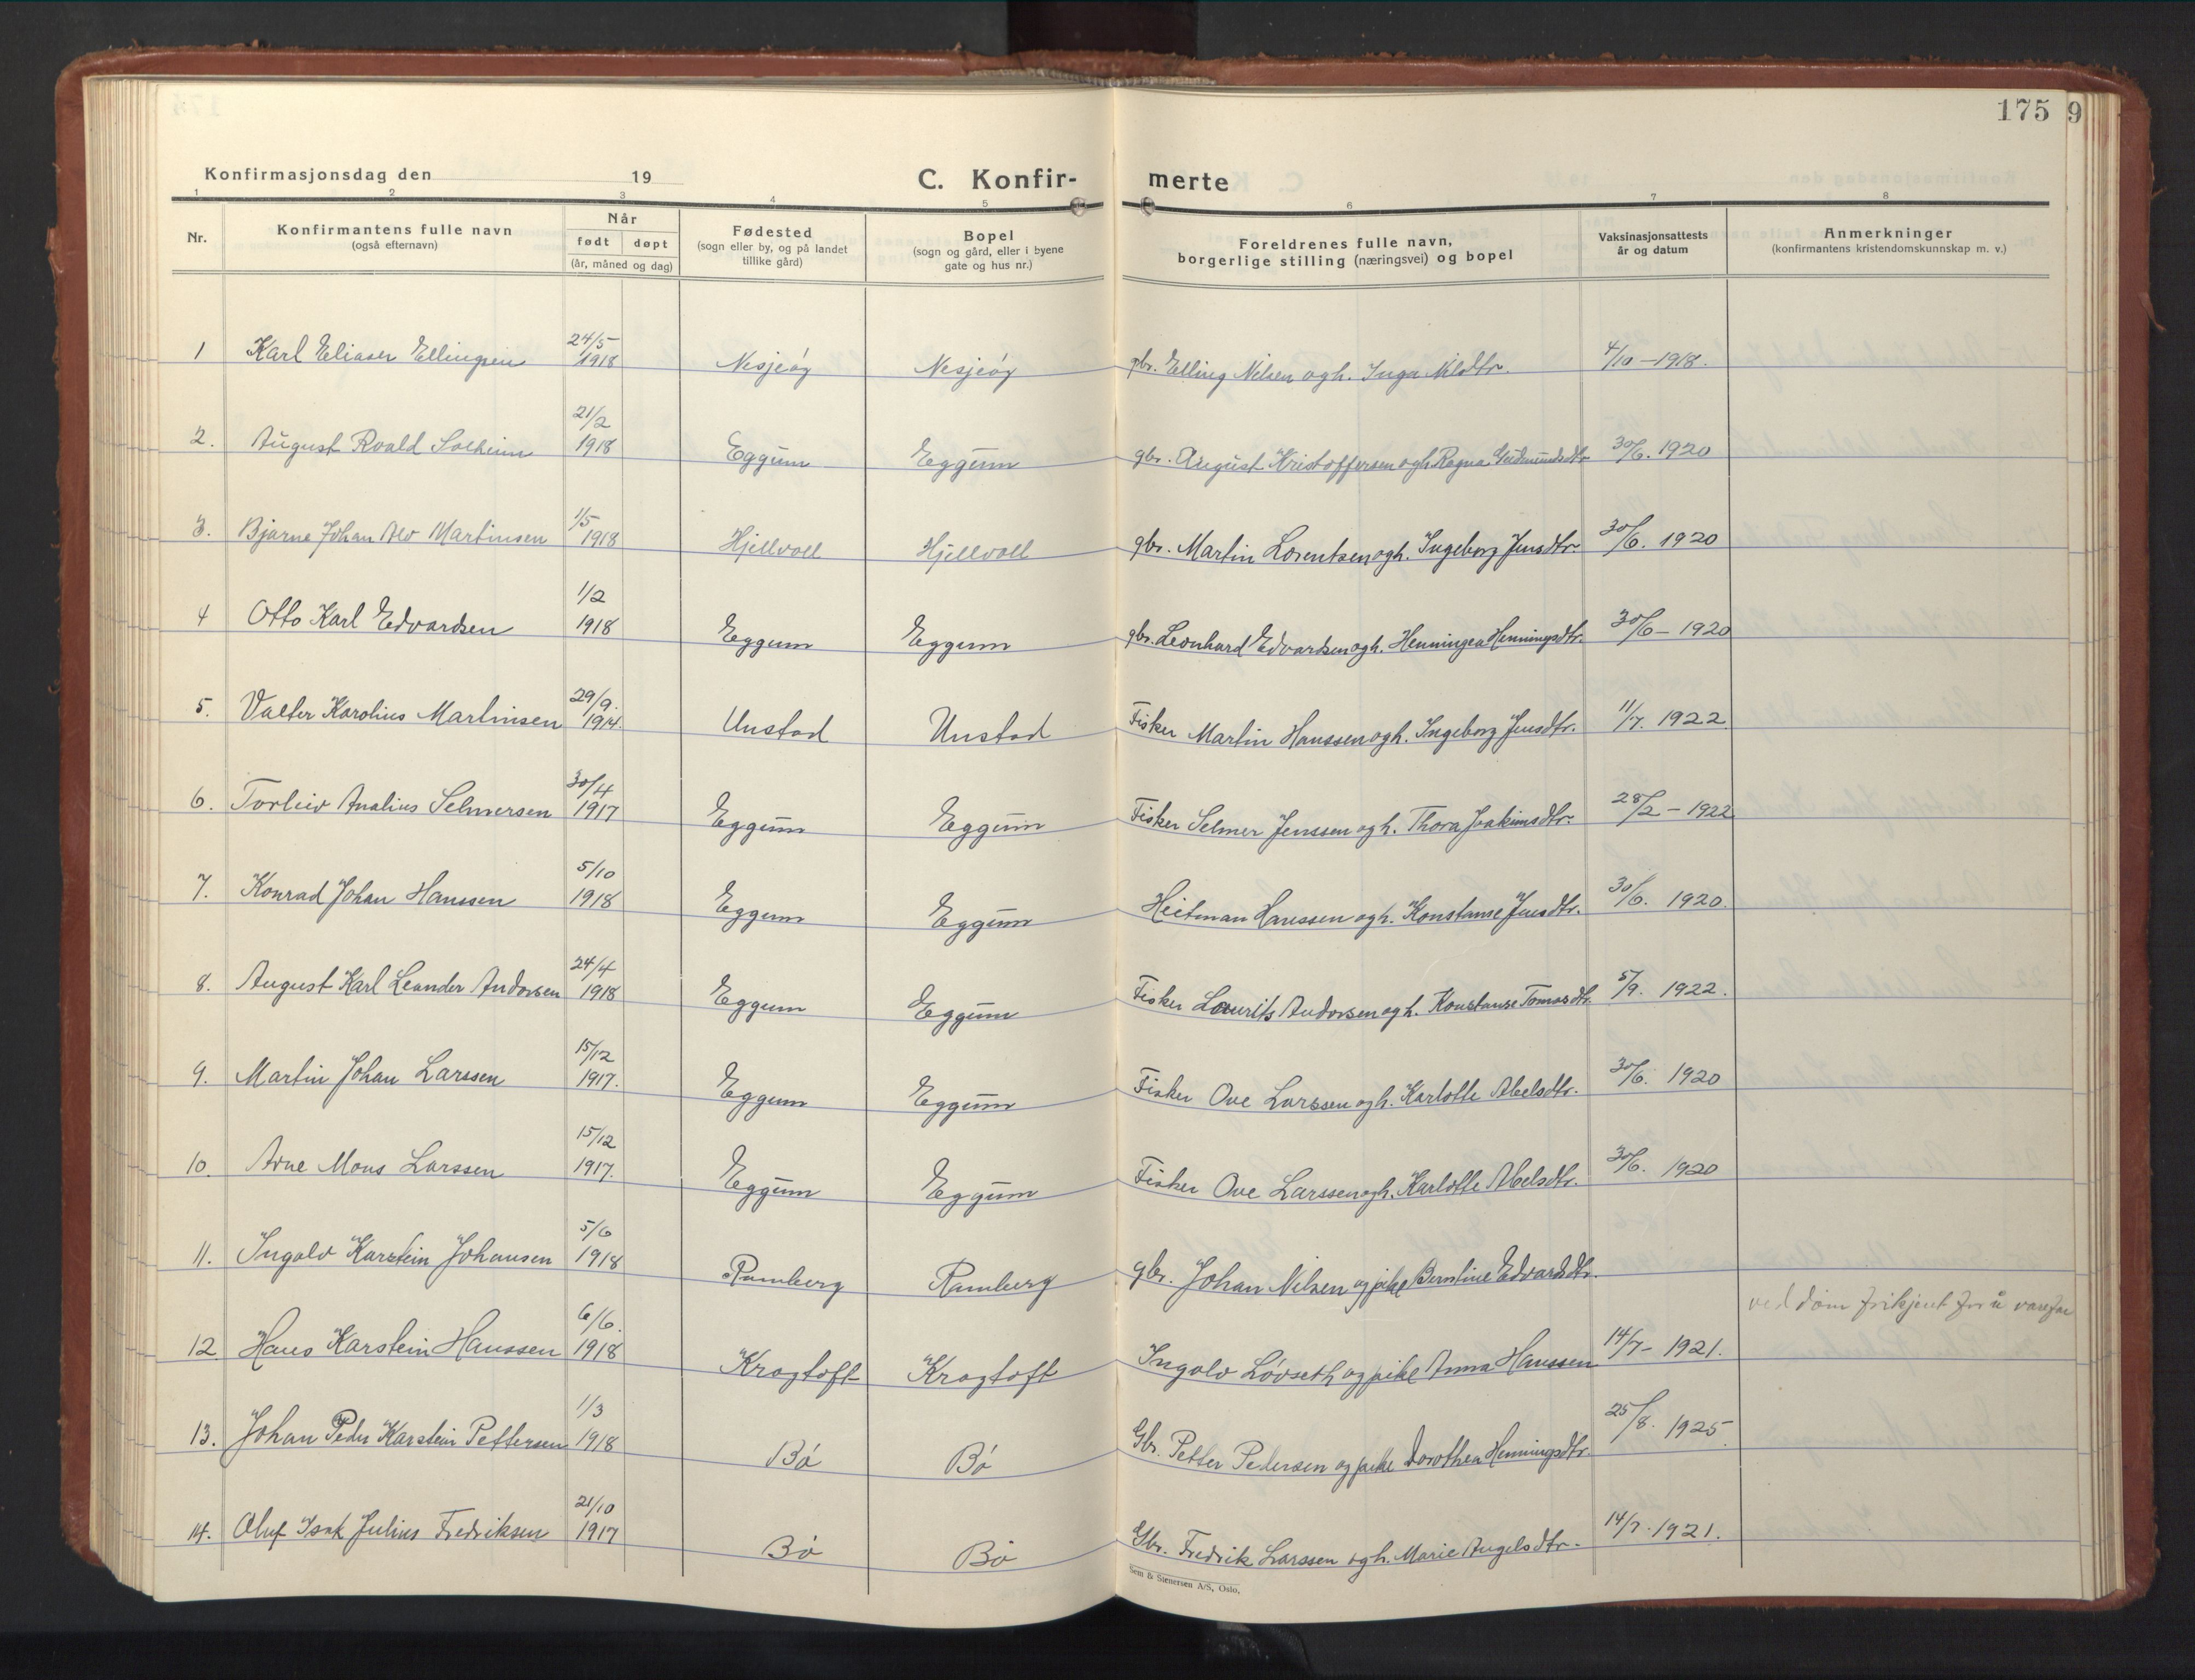 175 9
Konfirmasjonsdag den 19
C. Konfir- merte
1 2 3 4 5 6 7 8
Nr.
Konfirmantens fulle navn
(også efternavn)
Når
født døpt
(år, måned og dag)
Fødested
(sogn eller by, og på landet
tillike gård)
Bopel
(sogn og gård, eller i byene
gate og hus nr.)
Foreldrenes fulle navn,
borgerlige stilling (næringsvei) og bopel
Vaksinasjonsattests
år og datum
Anmerkninger
(konfirmantens kristendomskunnskap m. v.)
1 Karl Eliaser Ellingsen 24/5 1918 Nesjeøy Nesjeøy gbr. Elling Nilsen og h. Inga Nilsdtr. 4/10 - 1918.
2. August Roald Solheim 21/2 1918 Eggum Eggum gbr. August Kristoffersen og h. Ragna Gudmundsdtr 30/6. 1920
3. Bjarne Johan Alv Martinsen 1/5 1918 Hjellvoll Hjellvoll gbr. Martin Lorentsen og h. Ingeborg Jensdtr. 30/6. 1920
4 Otto Karl Edvardsen 1/2 1918 Eggum Eggum gbr. Leonhard Edvardsen og h. Henningea Henningsdtr. 30/6 - 1920
5. Valter Karolius Martinsen 29/9. 1914. Unstad Unstad Fisker Martin Hanssen og h. Ingeborg Jensdtr. 11/7. 1922.
6. Torleiv Analius Selmersen 30/4 1917 Eggum Eggum Fisker Selmer Jenssen og h. Thora Joakimsdtr. 28/2 - 1922
7. Konrad Johan Hanssen 5/10 1918 Eggum Eggum Heitman Hanssen og h. Konstanse Jensdtr. 30/6. 1920.
8. August Karl Leander Andorsen 24/4 1918 Eggum Eggum Fisker Laurits Andorsen og h. Konstanse Tomasdtr. 5/9. 1922.
9. Martin Johan Larssen 15/12 1917. Eggum Eggum Fisker Ove Larssen og h. Karlotte Abelsdtr. 30/6. 1920
10. Arne Mons Larssen 15/12 1917. Eggum Eggum Fisker Ove Larssen og h. Karlotte Abelsdtr. 30/6. 1920
11. Ingolv Karstein Johansen 5/6 1918 Ramberg Ramberg gbr. Johan Nilsen og pike Berntine Edvardsdtr.
12. Hans Karstein Hanssen 6/6. 1918 Kragtoft Kragtoft Ingolv Løvseth og pike Anna Hanssen 14/7 - 1921. ved dom frikjent for å være far
13. Johan Peder Karstein Pettersen 1/3 1918 Bø Bø Gbr. Petter Pedersen og pike Dorothea Henningsdtr. 25/8. 1925.
14. Oluf Isak Julius Fredriksen 21/10 1917 Bø Bø Gbr. Fredrik Larssen og h. Marie Angelsdtr. 14/7. 1921.
Sem & Stenersen A/S, Oslo.